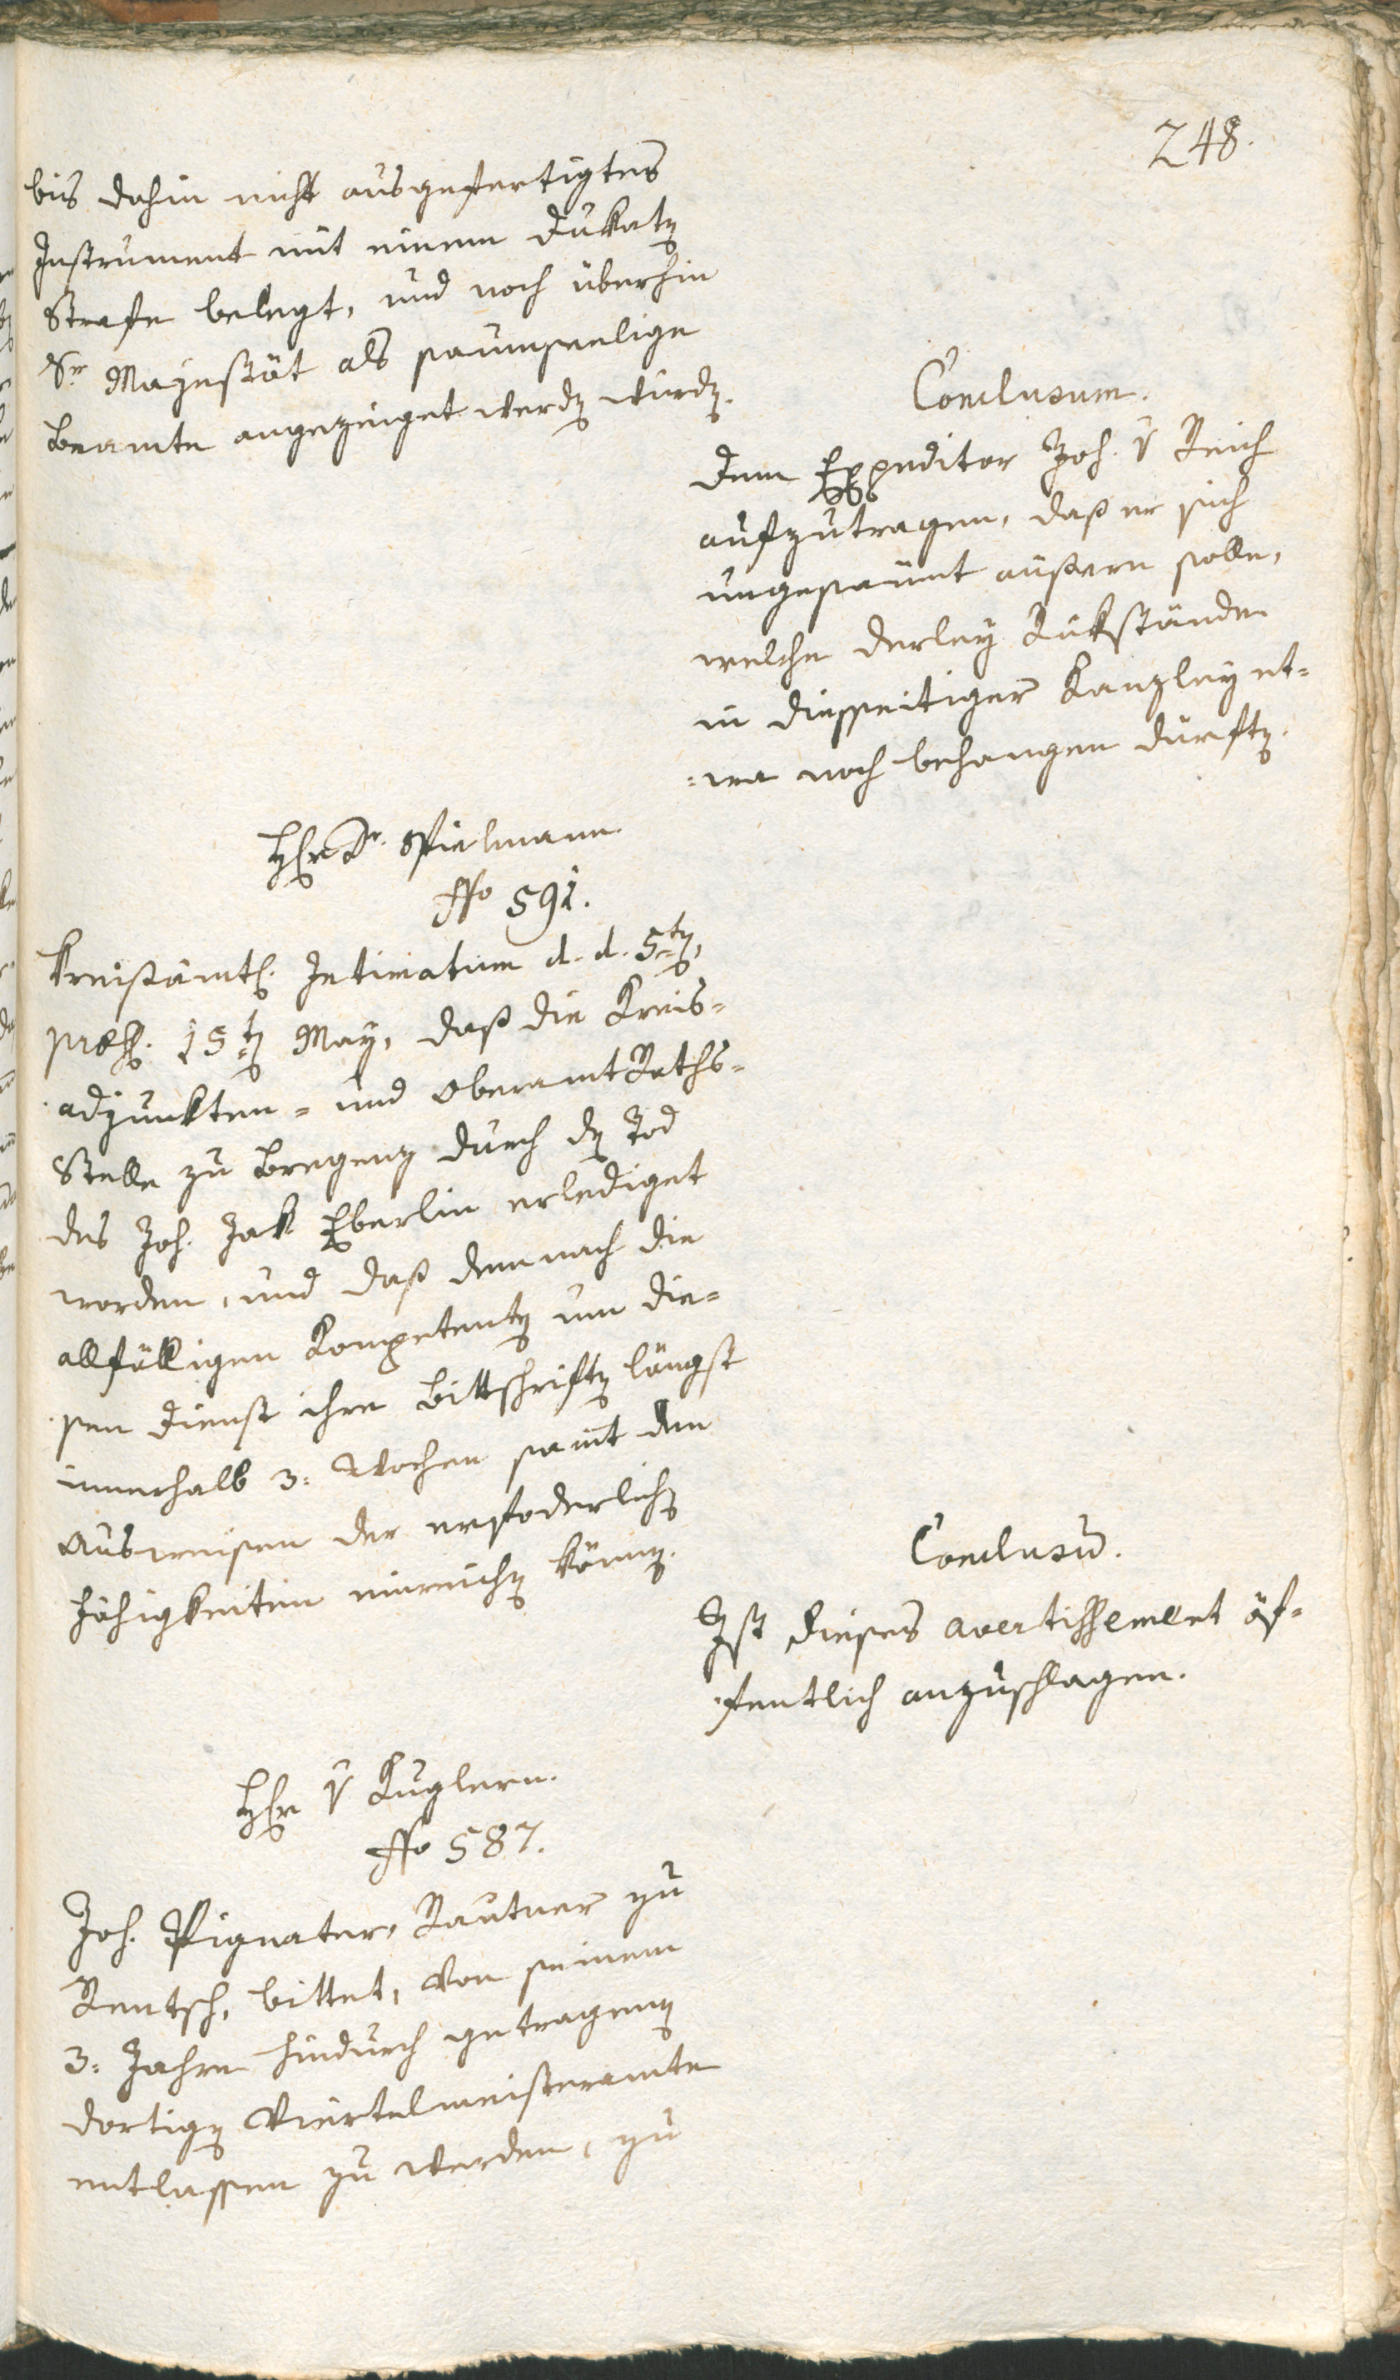 248.
bis dahin nicht ausgefertigtes
Instrument mit einem Dukaten
Strafe belegt, und noch überhin
Sr Majestät als saumseelige
Beamte angezeiget werden würden.
Conclusum.
Dem Expeditor Joh. v Reich
aufzutragen, daß er sich
ungesaumt äußern solle,
welche derley Rükstände
in diesseitiger Kanzley et-
-wa noch behangen dürften.
Hhr Dr. Spielmann
No 591.
Kreisämtl. Intimatum d. d. 5ten,
præs. 15ten May, daß die Kreis-
adjunkten- und OberamtRaths-
Stelle zu Bregenz durch den Tod
des Joh. Jak Eberlin erlediget
worden, und daß demnach die
allfälligen Kompetenten um die-
sen Dienst ihre Bittschriften längst
innerhalb 3: Wochen samt den
Ausweisen der erfoderlichen
Fähigkeiten einreichen können.
Conclusum.
Ist dieses avertissement öf-
fentlich anzuschlagen.
Hhr v Kuglern.
No 587.
Joh. Pignater, Rautner zu
Rentsch, bittet, von seinem
3: Jahre hindurch getragenen
dortigen Viertelmeisteramte
entlassen zu werden, zu